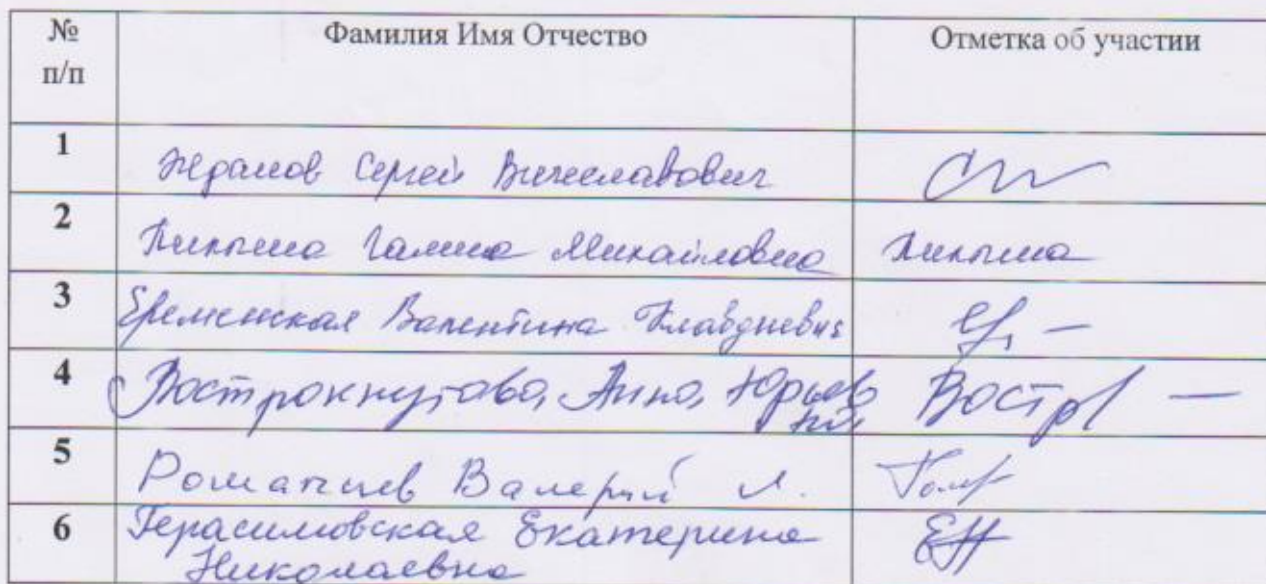 № Фамилия Имя Отчество Отметка об участии
п/п
1 Жданов Сергей Вячеславович
2 Галина Михайловна
3 Еременская Валентина Клавдиевна
4 Вострокнутова Анна Юрьев Востр
на
5 Валерий
6 Герасимовская Екатерина
Николаевна